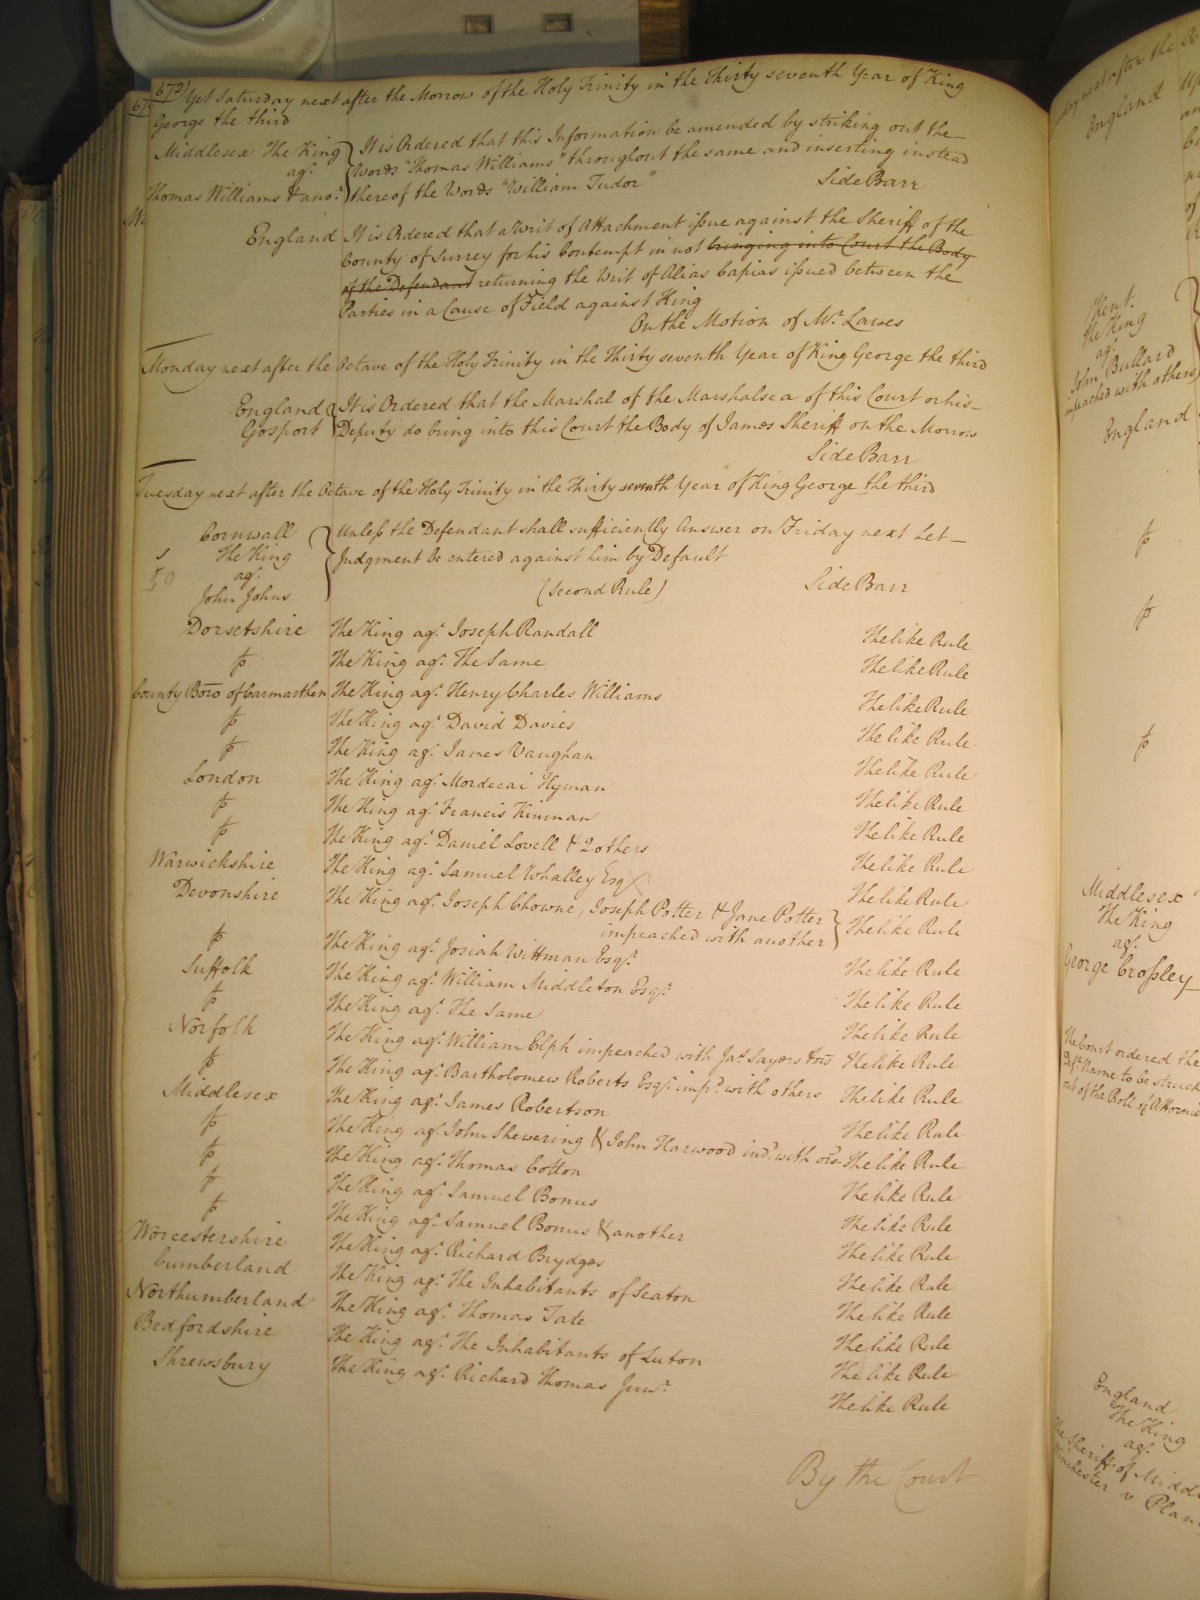 672) Yet Saturday next after the Morrow of the Holy Trinity in the Thirty seventh Year of King
George the third
Middlesex The King
agt.
Thomas Williams & ano.
It is Ordered that this Information be amended by striking out the
Words "Thomas Williams" throughout the same and inserting instead
thereof the Words "William Tudor"
Side Barr
England It is Ordered that a Writ of Attachment issue against the Sheriff of the
County of Surrey for his Contempt in not bringing into Court the Body
of the Defendant returning the Writ of Alias Capias issued between the
Parties in a Cause of Field against King
On the Motion of Mr. Lawes
Monday next after the Octave of the Holy Trinity in the Thirty seventh Year of King George the third
England
Gosport
It is Ordered that the Marshal of the Marshalsea of this Court or his
Deputy do bring into this Court the Body of James Sheriff on the Morrow
Side Barr
Tuesday next after the Octave of the Holy Trinity in the Thirty seventh Year of King George the third
Cornwall
The King
agt.
John Johns
S
50
Unless the Defendant shall sufficiently Answer on Friday next Let
Judgment be entered against him by Default
(Second Rule) Side Barr
Dorsetshire The King agt. Joseph Randall The like Rule
Do The King agt. The Same The like Rule
County Boro of Carmarthen The King agt. Henry Charles Williams The like Rule
Do The King agt. David Davies The like Rule
Do The King agt. James Vaughan The like Rule
London The King agt. Mordecai Hyman The like Rule
Do The King agt. Francis Kinman The like Rule
Do The King agt. Daniel Lovell & 2 others The like Rule
Warwickshire The King agt. Samuel Whalley Esq The like Rule
Devonshire The King agt. Joseph Chowne, Joseph Potter & Jane Potter
impeached with another The like Rule
Do The King agt. Josiah Wittman Esqr. The like Rule
Suffolk The King agt. William Middleton Esqr. The like Rule
Do The King agt. The Same The like Rule
Norfolk The King agt. William Elph impeached with Jas. Sayers & ors The like Rule
Do The King agt. Bartholomew Roberts Esqr. impd. with others The like Rule
Middlesex The King agt. James Robertson The like Rule
Do The King agt. John Shewering & John Harwood indd. with ors The like Rule
Do The King agt. Thomas Cotton The like Rule
Do The King agt. Samuel Bonus The like Rule
Do The King agt. Samuel Bonus & another The like Rule
Worcestershire The King agt. Richard Brydges The like Rule
Cumberland The King agt. The Inhabitants of Seaton The like Rule
Northumberland The King agt. Thomas Tate The like Rule
Bedfordshire The King agt. The Inhabitants of Luton The like Rule
Shrewsbury The King agt. Richard Thomas Junr. The like Rule
By the Court
next after the
England
Kent
The King
agt.
John Bullard
impeached with others
England
Do
Do
Do
Middlesex
The King
agt.
George Crossley
The Court ordered the
Deft. Name to be struck
out of the Roll of Attornies
England
The King
agt.
The Sheriff of Middl